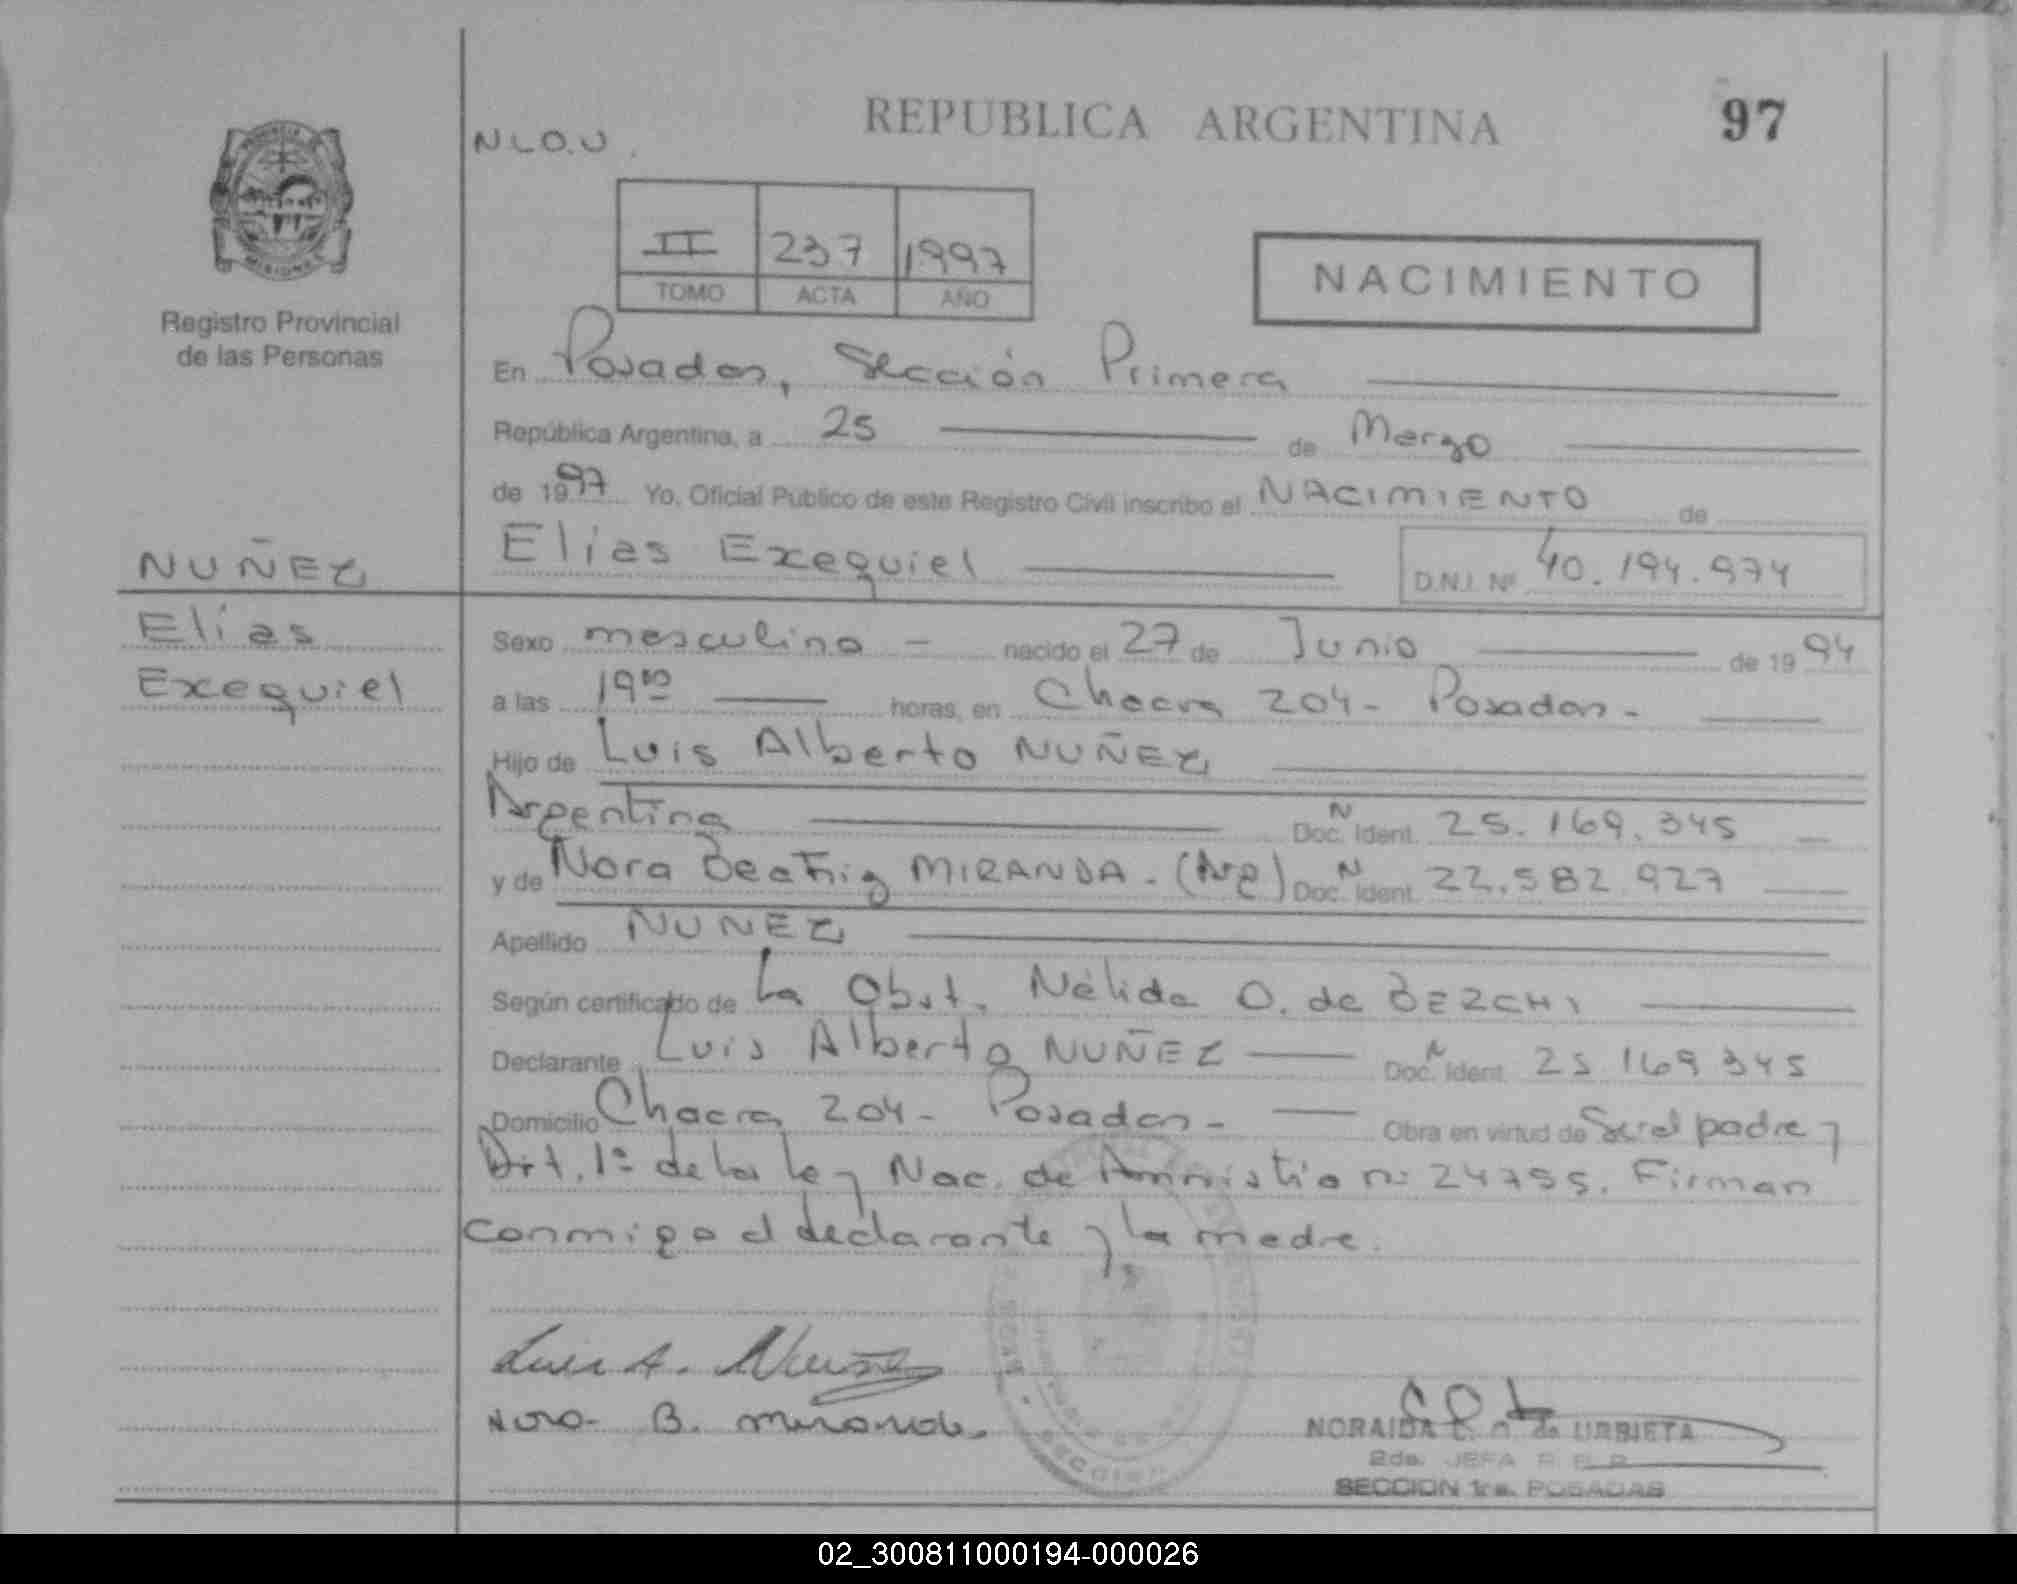 REPUBLICA ARGENTINA
97
N.L.O.U.
II 237 1997
TOMO ACTA AÑO
NACIMIENTO
MISIONES
Registro Provincial
de las Personas
En Posadas, Sección Primera
República Argentina, a 25 de Marzo
de 1997 Yo, Oficial Público de este Registro Civil inscribo el NACIMIENTO de
NUÑEZ
Elías Exequiel
D.N.I. Nº 40.194.974
Elías
Exequiel
Sexo masculino - nacido el 27 de Junio de 1994
a las 19 horas, en Chacra 204 - Posadas -
Hijo de Luis Alberto NUÑEZ
Argentina Doc. N Ident. 25.169.345
y de Nora Beatriz MIRANDA. (Arg) Doc. N Ident. 22.582.927
Apellido NUÑEZ
Según certificado de La Obst. Nélida O. de BEZCHI
Declarante Luis Alberto NUÑEZ Doc. N Ident. 25 169 345
Domicilio Chacra 204 - Posadas - Obra en virtud de Ser el padre y
Art. 1º de la ley Nac. de Amnistia nº 24755. Firman
conmigo el declarante y la madre.
Luis A. Nuñez
Nora B. Miranda
NORAIDA de URBIETA
2da. JEFA R.P.P.
SECCION 1ra. POSADAS
02_300811000194-000026